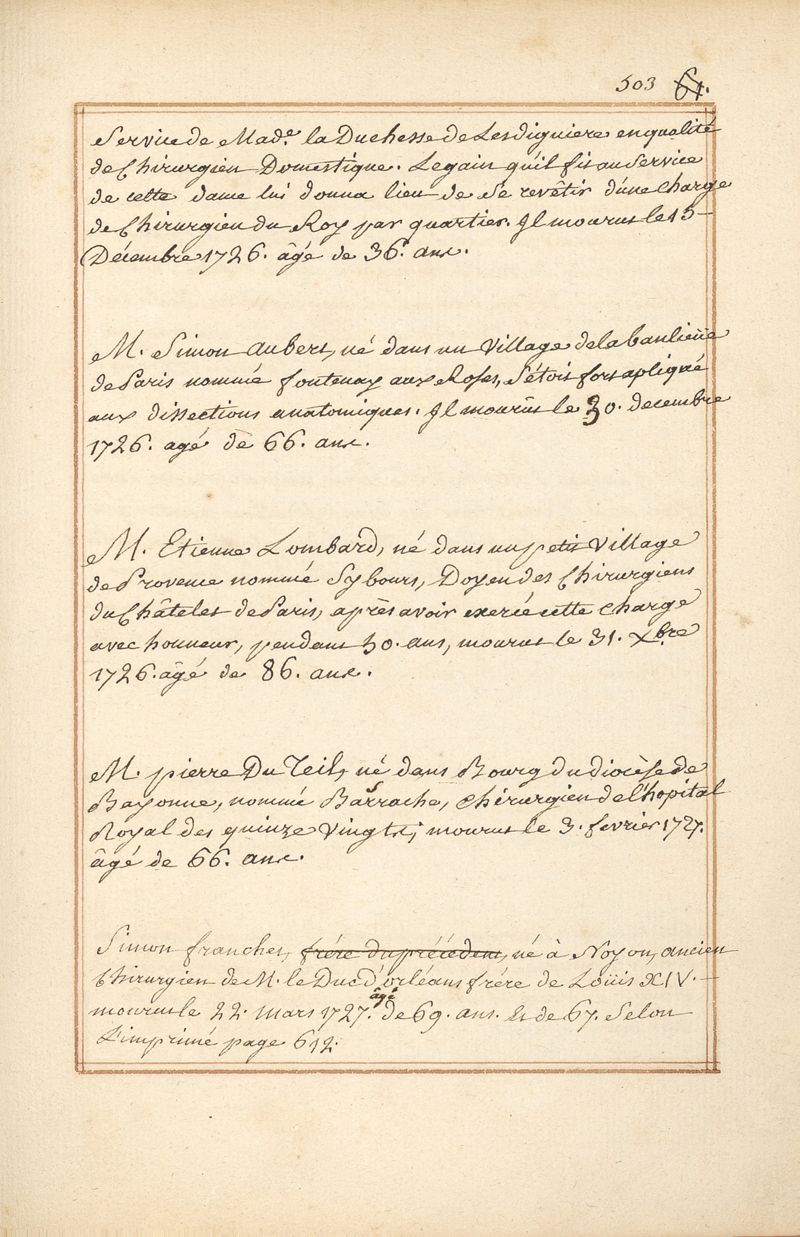 503 61.
Service de Mad.e la Duchesse de Lesdiguiere en qualité
de Chirurgien Domestique. Le gain qu'il fit au Service
de cette dame lui donna lieu de Se revêtir d'une Charge
de Chirurgien du Roy par quartier. Il mourut le 15
Décembre 1726. âgé de 36. ans.
M. Simon Aubert, né dans un Village de la banlieüe
de Paris nommé fontenay aux Roses, S'étoit fort apliqué
aux dissections anatomiques. Il mourût le 30. decembre
1726. agé de 66. ans.
M. Etienne Lombard, né dans un petit Village
de Provence nommé Sybours, Doyen des Chirurgiens
du Châtelet de Paris, après avoir exercé cette Charge
avec honneur, pendant 50. ans, mourut le 31. Xbre
1726. âgé de 86. ans.
M. pierre Du Teil, né dans Bourg du diocèse de
Bayonne, nommé Barrache, Chirurgien de l'hopital
Royal des quinze Vingts; mourut le 3. fevrier 1727.
âgé de 66. ans.
Simon franchet, frére du précédent, né à Noyon, ancien
Chirurgien de M. le Duc d'orléans frére de Loüis XIV.
mourut le 22. mars 1727. âgé de 69. ans. et de 67. Selon
L'imprimé page 612.